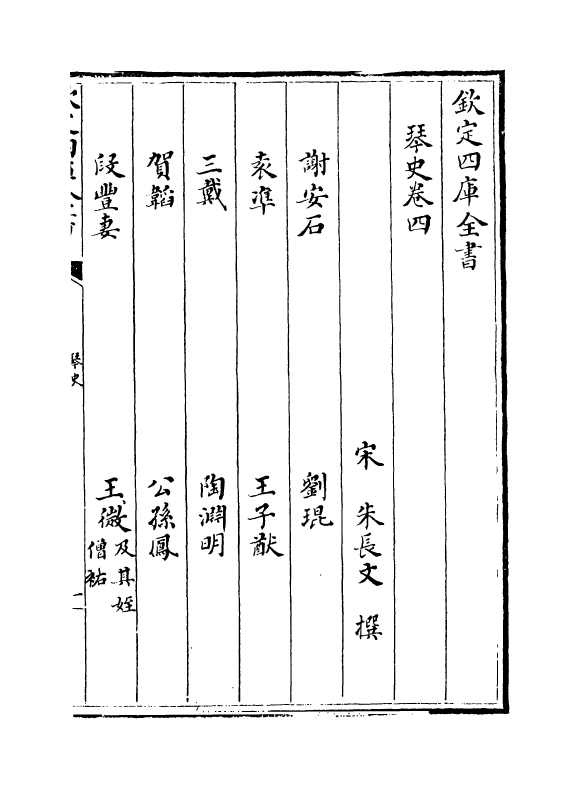 欽定四庫全書
琴史卷四
宋 朱長文 撰
謝安石 劉琨
袁準 王子猷
三戴 陶淵明
賀韜 公孫鳳
段豐妻 王微及其姪僧祐
琴史
一